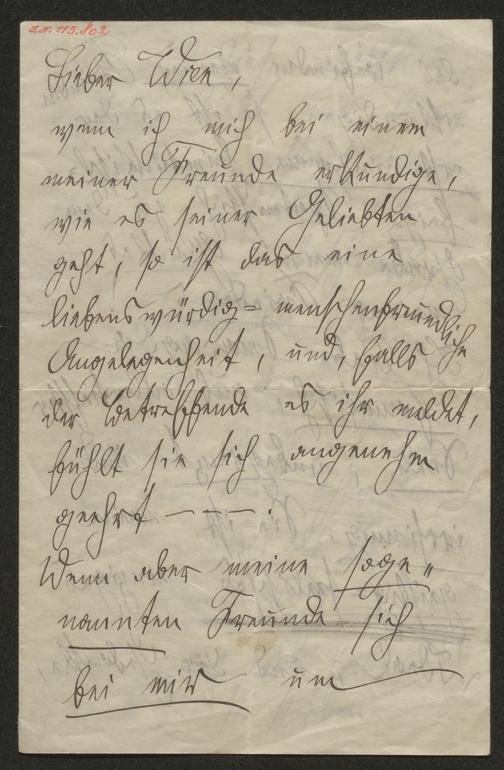 a.N. 115.802
Lieber Wien,
wenn ich mich bei einem
meiner Freunde erkundige,
wie es seiner Geliebten
geht, so ist das eine
liebenswürdig=menschenfreundliche
Angelegenheit, und, falls
der Betreffende es ihr meldet,
fühlt sie sich angenehm
geehrt — — — .
Wenn aber meine soge„
nannten Freunde sich
bei mir um